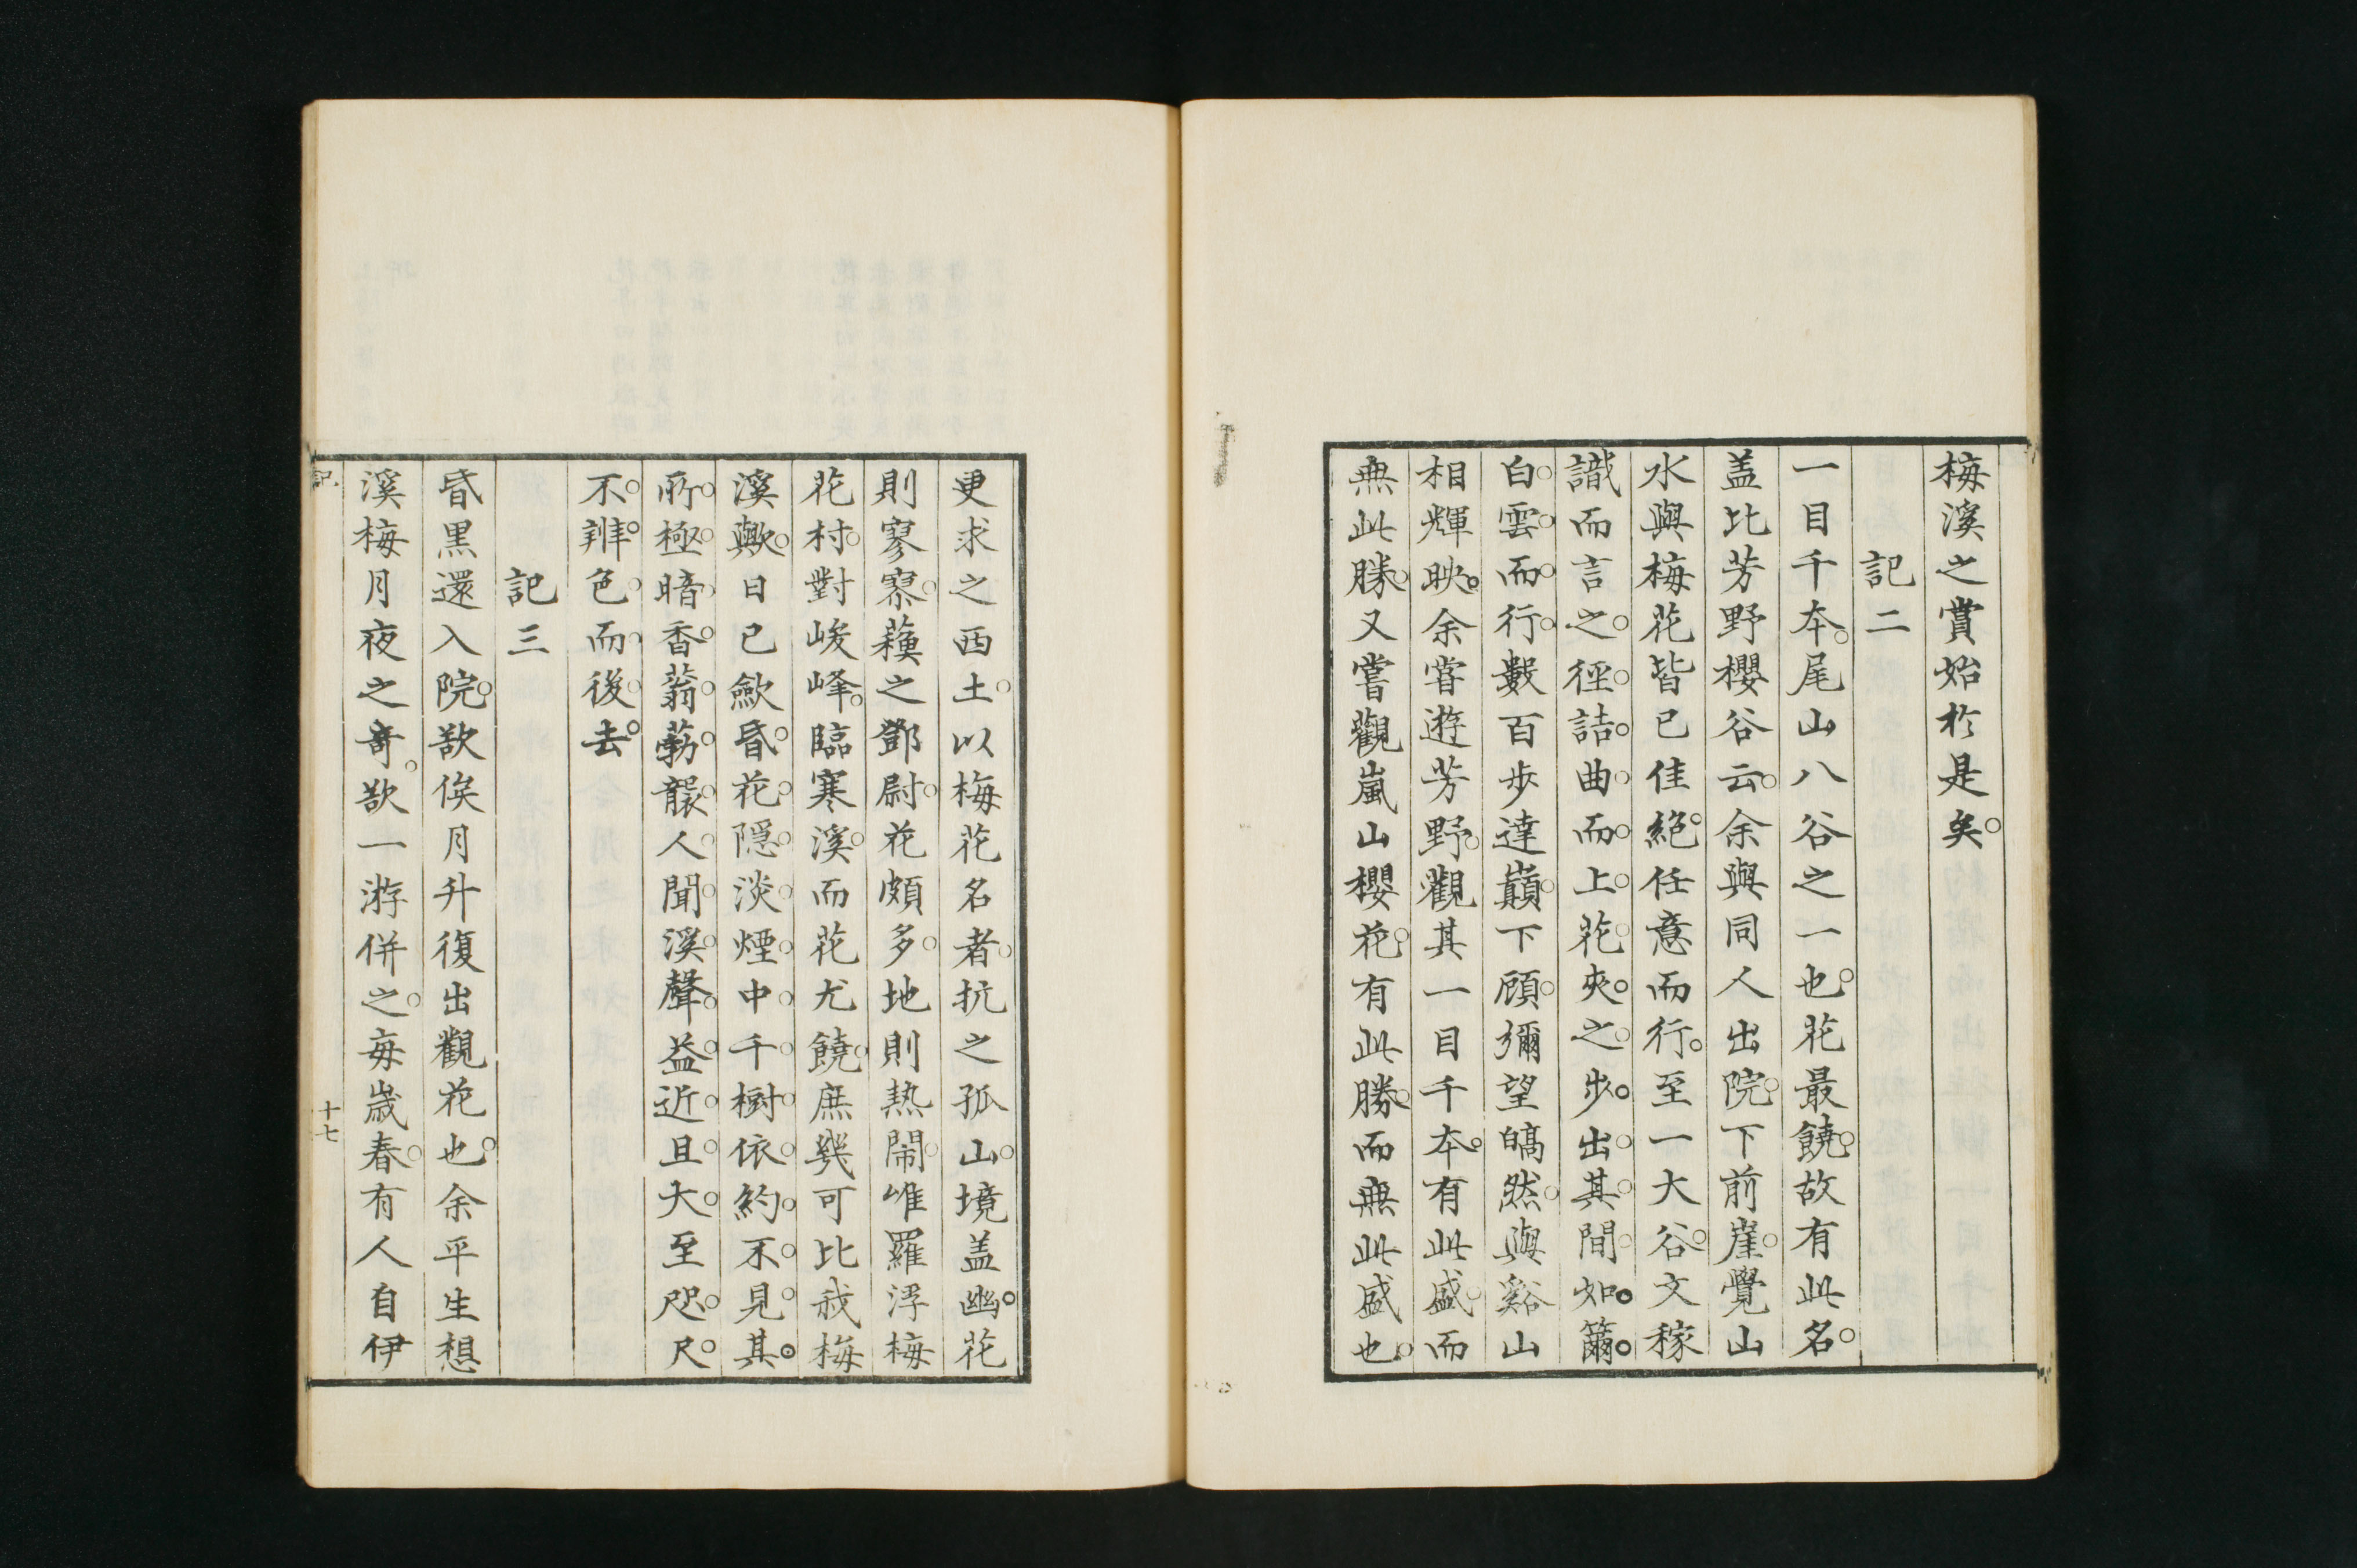 梅溪之賞始於是矣
記二
一目千本尾山八谷之一也花最饒故有此名
盖比芳野櫻谷云余與同人出院下前崖覺山
水與梅花皆已佳絶任意而行至一大谷文稼
識而言之徑詰曲而上花夾之步出其間如籋
白雲而行數百步達巔下顧彌望皜然與谿山
相輝映余嘗遊芳野觀其一目千本有此盛而
無此勝又嘗觀嵐山櫻花有此勝而無此盛也
更求之西土以梅花名者抗之孤山境盖幽花
則寥寮蘓之鄧尉花頗多地則熱鬧唯羅浮梅
花村對峻峰臨寒溪而花尤饒庶幾可比我梅
溪歟日已歛昏花隱淡煙中千樹依約不見其
所極暗香蓊勃襲人聞溪聲益近且大至咫尺
不辨色而後去
記三
昏黑還入院欲俟月升復出觀花也余平生想
溪梅月夜之奇欲一游併之毎歳春有人自伊
記
十七